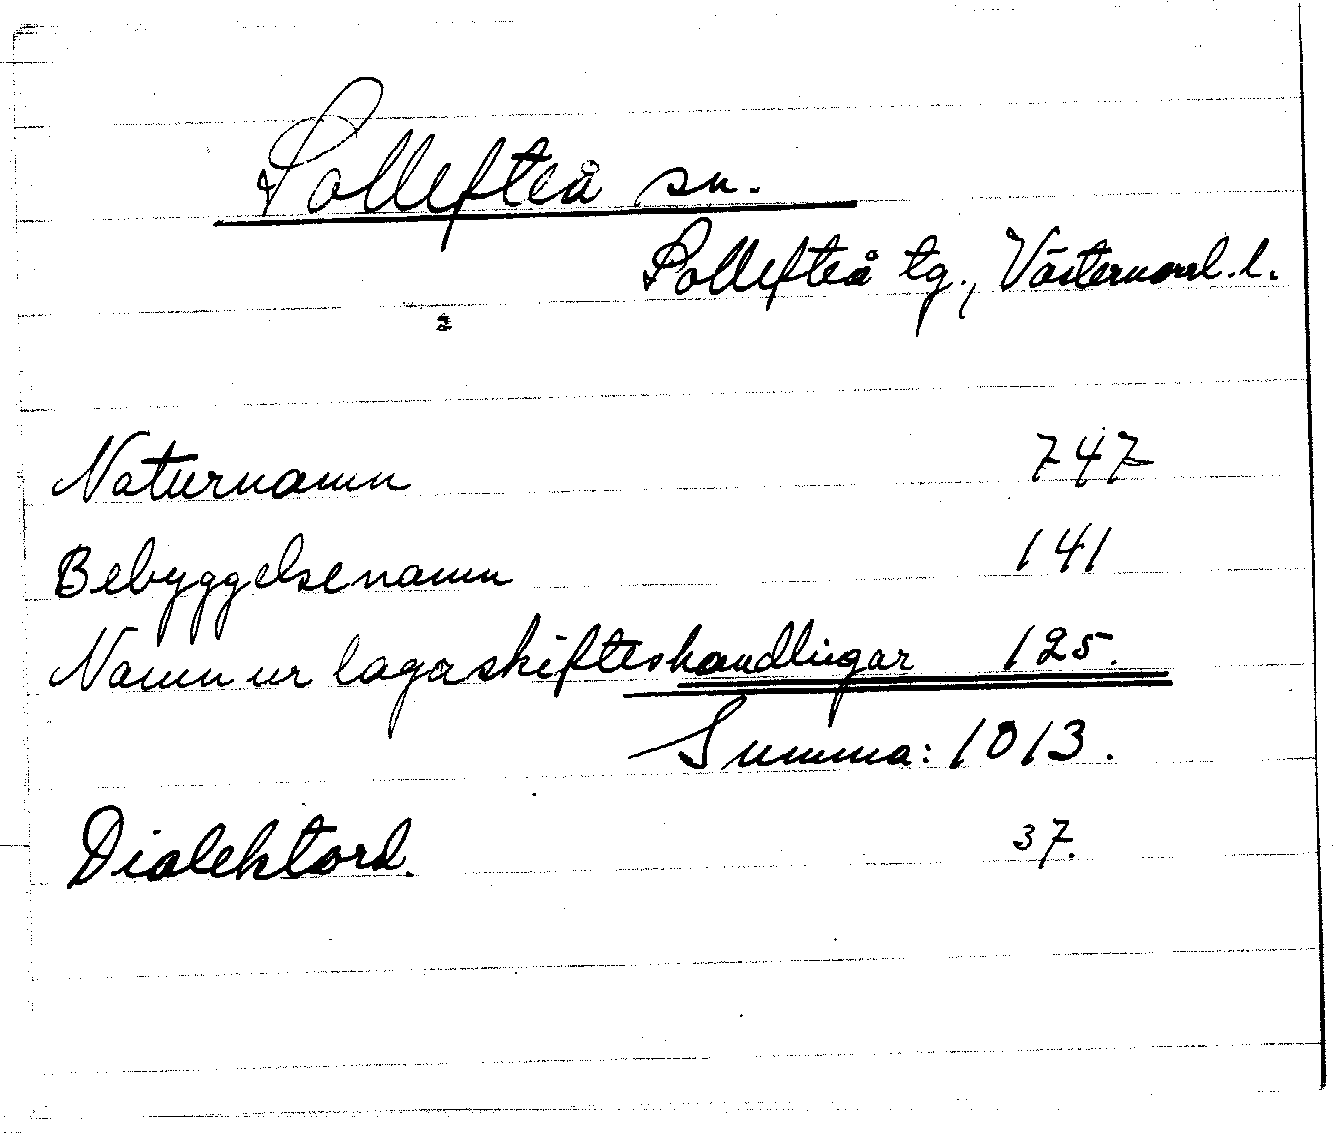 Sollefteå sn.
Sollefteå tg., Västernorrl. l.
Naturnamn 747
Bebyggelsenamn 141
Namn ur lagaskifteshandlingar 125.
Summa: 1013.
Dialektord. 37.